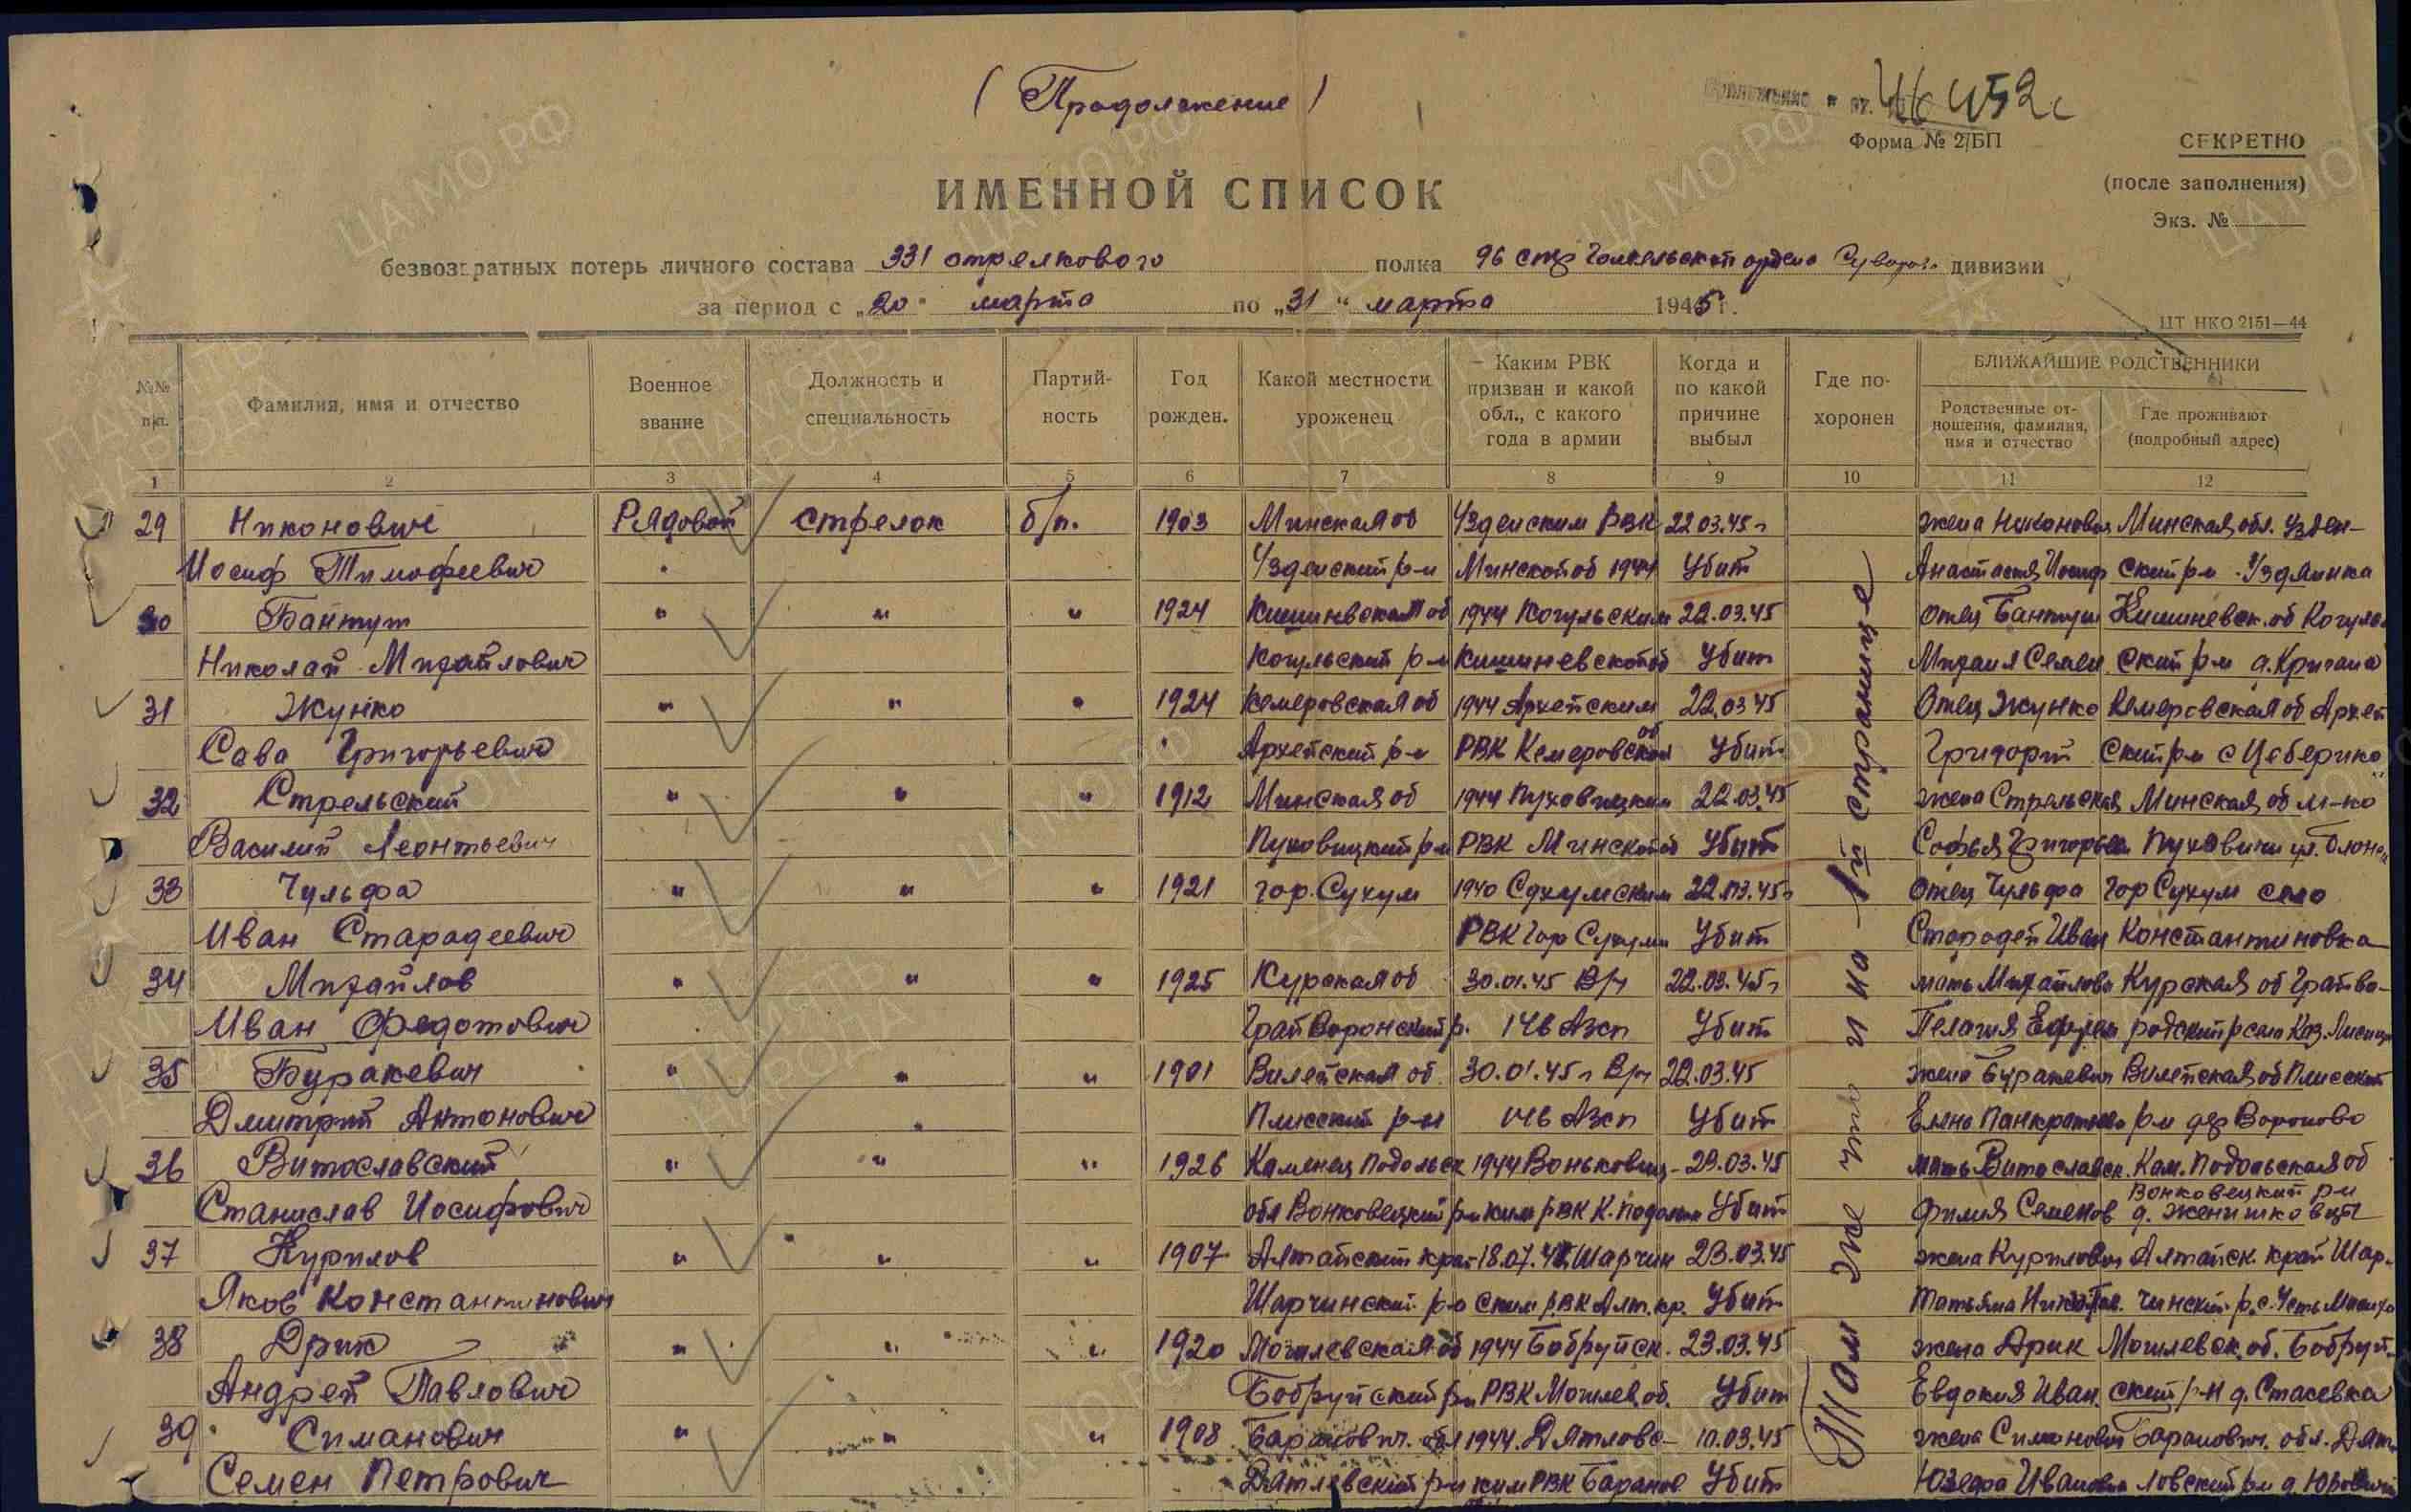 ( Продолжение )
46452с
Форма № 2/БП
СЕКРЕТНО
(после заполнения)
Экз. №
ИМЕННОЙ СПИСОК
безвозвратных потерь личного состава 331 стрелкового полка 96 стр Гомельской ордена Суворова дивизии
за период с „20" марта по „31" марта 1945 г.
ЦТ НКО 2151—44
№№ п/п.
Фамилия, имя и отчество
Военное звание
Должность и специальность
Партий-ность
Год рожден.
Какой местности уроженец
Каким РВК призван и какой обл., с какого года в армии
Когда и по какой причине выбыл
Где по-хоронен
БЛИЖАЙШИЕ РОДСТВЕННИКИ
Родственные от-ношения, фамилия, имя и отчество
Где проживают (подробный адрес)
1 2 3 4 5 6 7 8 9 10 11 12
29 Никонович Рядовой стрелок б/п. 1903 Минская об Узденским РВК 22.03.45г жена Никонович Минская обл. Узден-
Иосиф Тимофеевич Узденский р-н Минской об 1944 Убит Анастасия Иосиф ский р-н Уздянка
30 Бантуш " " " 1924 Кишиневская об 1944 Когульским 22.03.45 отец Бантуш Кишиневск. об Когуль
Николай Михайлович Когульский р-н Кишиневской об Убит Михаил Семен. ский р-н
31 Жунко " " " 1924 Кемеровская об 1944 22.03.45 Отец Жунко Кемеровская об
Сава Григорьевич РВК Кемеровской об Убит Григорий ский р-н с
32 Стрельский " " " 1912 Минская об 1944 Пуховицким 22.03.45 жена Стрельская Минская об м-ко
Василий Леонтьевич Пуховицкий р-н РВК Минской об Убит Софья Григорьев Пуховичи ул.
33 Чульфа " " " 1921 гор. Сухум 1940 Сухумским 22.03.45г отец Чульфа гор Сухум село
Иван Старадеевич РВК гор Сухуми Убит Иван Константиновка
34 Михайлов " " " 1925 Курская об 30.01.45 В/ч 22.03.45г мать Михайлова Курская об Грайво-
Иван Федотович ГрайВоронский р. 146 Азсп Убит Пелагия Ефрем
35 Буракевич " " " 1901 Вилейская об 30.01.45г В/ч 22.03.45 жена Буракевич Вилейская об Плисский
Дмитрий Антонович Плисский р-н 146 Азсп Убит Елена Панкратьев р-н дер Вороново
36 Витославский " " " 1926 Каменец Подольск 1944 Воньковец- 23.03.45 мать Витославск. Кам. Подольская об
Станислав Иосифович обл Вонковецкий р-н ким РВК К. Подольск Убит Семенов Вонковецкий р-н д. Женишковцы
37 Курилов " " " 1907 Алтайский край 18.07. Шарчин 23.03.45 жена Курилова Алтайск. край Шар-
Яков Константинович Шарчинский р-н ским РВК Алт. кр. Убит Татьяна чинский р. с. Усть Мосиха
38 Дрик " " " 1920 Могилевская об 1944 Бобруйск. 23.03.45 жена Дрик Могилевск. об. Бобруй-
Андрей Павлович Бобруйский р-н РВК Могилев. об. Убит Евдокия Иван. ский р-н д. Стасевка
39 Симанович " " " 1908 Баранович. обл 1944 Дятловс- 10.03.45 жена Симанович Баранович. обл. Дят-
Семен Петрович Дятлевский р-н ким РВК Баранов Убит Юзефа Ивановна ловский р-н д.
Там же что и на 1й странице